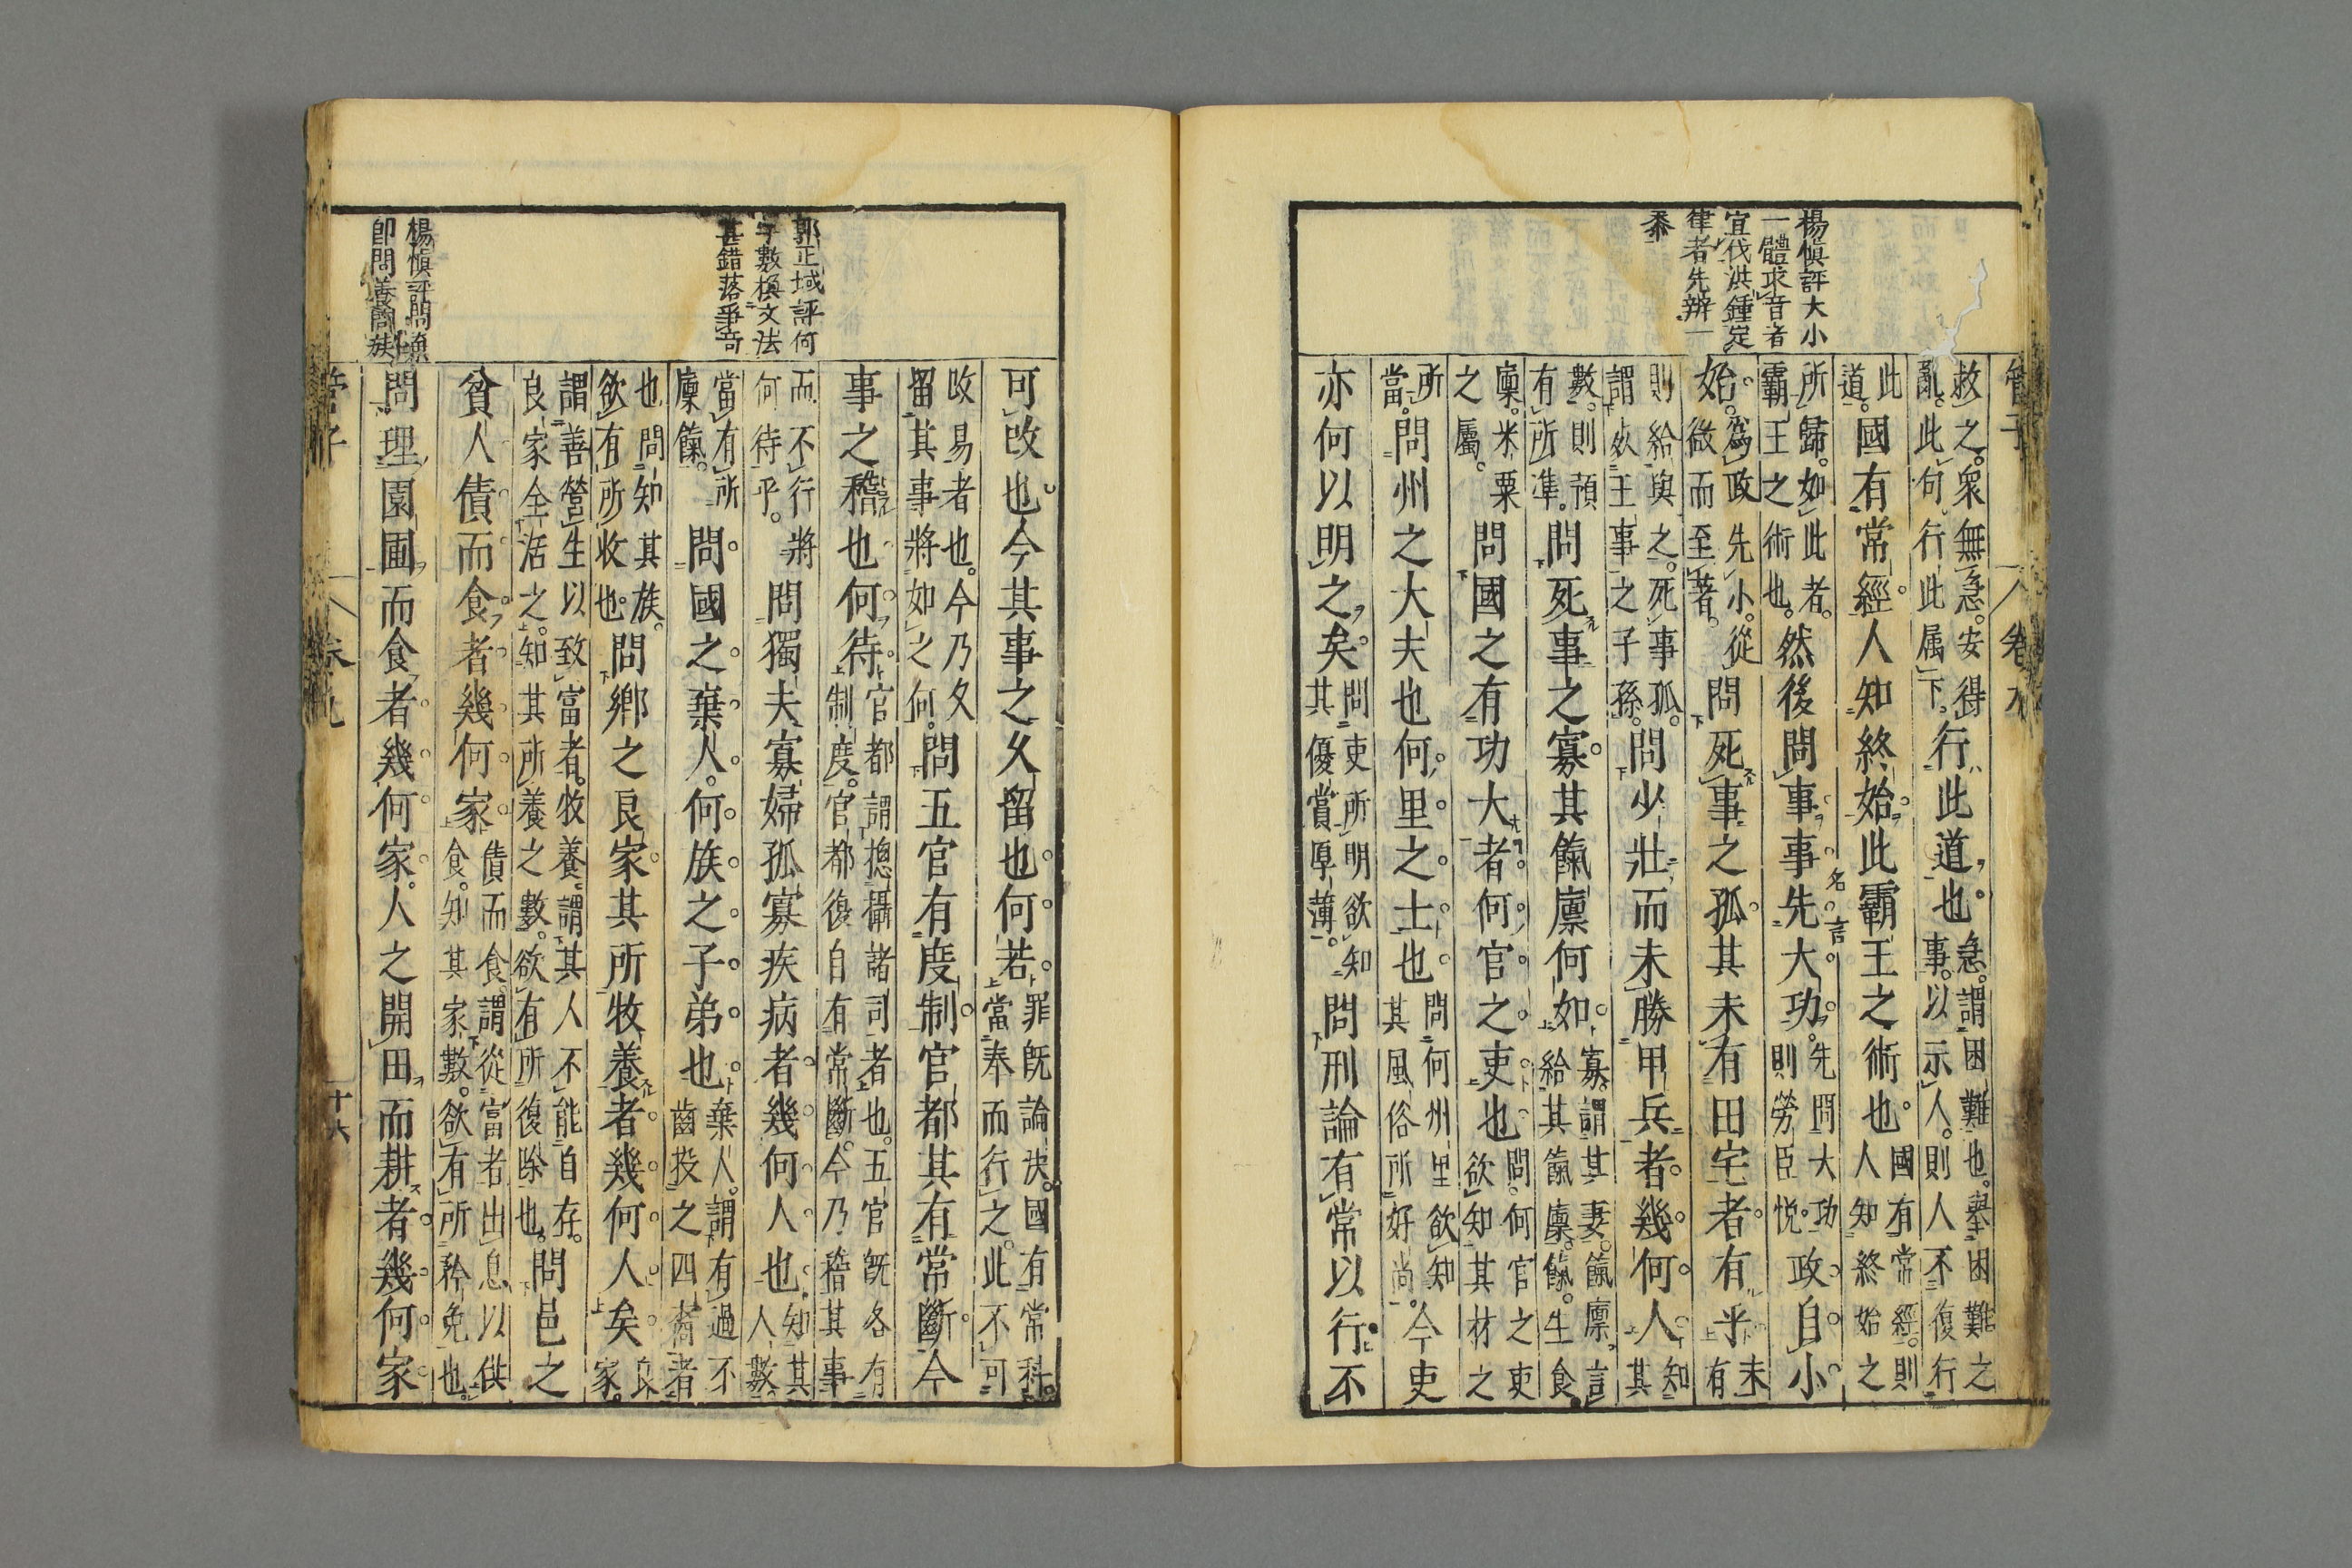 管子 卷九
楊慎評大小
一體求音者
宜伐洪鍾定
律者先辨一
黍
救之。衆無急。安得亂。此句。行此属下。行此道也。急。謂困難也。舉困難之事。以示人。則人不復行
此道。國有常經。人知終始。此霸王之術也。國有常經。則人知終始之
所歸。如此者。霸王之術也。然後問事。事先大功。名言先問大功則勞臣悅。政自小
始。為政先小。從微而至著。問死事之孤。其未有田宅者有乎未有
則給與之。死事孤。謂死王事之子孫。問少壯而未勝甲兵者。幾何人知其
數。則預有所準。問死事之寡。其餼廩何如。寡。謂其妻。餼廩。言給其餼廩。餼。生食
廩。米粟之屬。問國之有功大者。何官之吏也問。何官之吏欲知其材之
所當。問州之大夫也何。里之士也問何州里欲知其風俗所好尚。今吏
亦何以明之矣。問吏所明欲知其優賞厚薄。問刑論有常以行不
郭正域評何
字數換文法
甚錯落爭奇
楊慎評問漁
即問養問妖
可改也今其事之久留也何若。罪既論決。國有常科。當奉而行之。此不可
改易者也。今乃久留其事將如之何。問五官有度制。官都其有常斷。今
事之稽也何待。官都謂揔攝諸司者也。五官既各有制度。官都復自有常斷。今乃稽其事
而不行將何待乎。問獨夫寡婦孤寡疾病者幾何人也知其人數
當有所廩餼。問國之棄人。何族之子弟也。棄人。謂有過不齒投之四裔者
也問知其族。欲有所收也。問鄉之良家其所牧養者。幾何人矣良家。
謂善營生以致富者。牧養。謂其人不能自存。良家全活之。知其所養之數。欲有所復除也。問邑之
貧人債而食者幾何家債而食。謂從富者出息以供食。知其家數。欲有所矜免也。
問理園圃而食者幾何家。人之開田而耕者幾何家
管子 卷九 十六